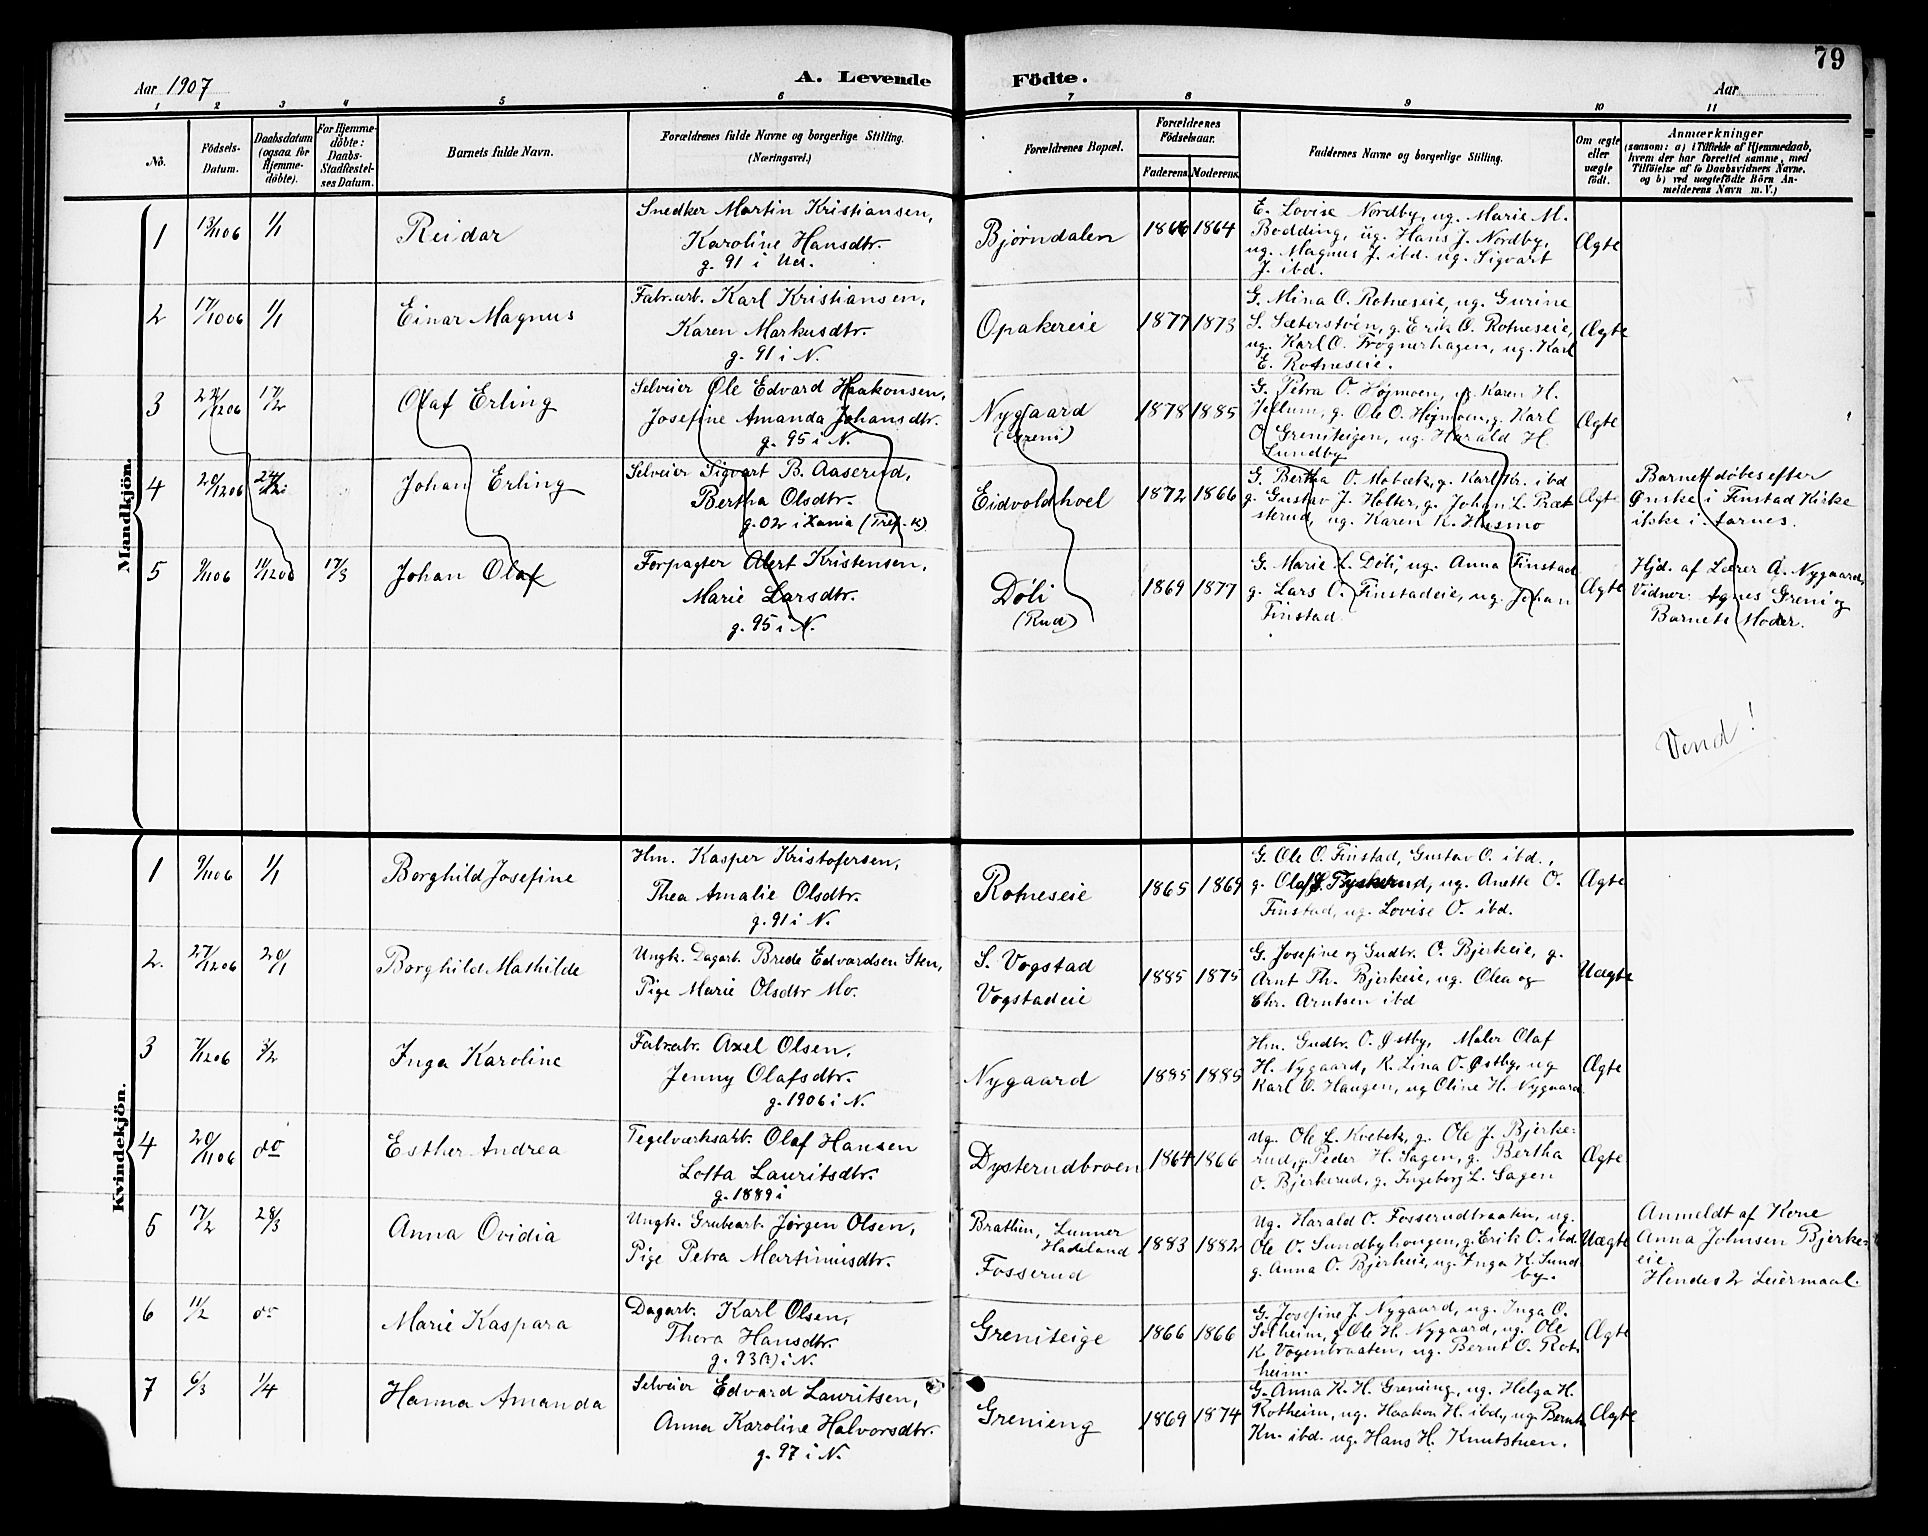 79
Aar 1907
A. Levende
Födte.
Aar
1 2 3 4 5 6 7 8 9 10 11
No.
Födsels-
Datum.
Daabsdatum
(ogsaa for
Hjemme-
döbte).
For Hjemme-
döbte:
Daabs-
Stadfæstel-
ses Datum.
Barnets fulde Navn.
Forældrenes fulde Navne og borgerlige Stilling.
(Næringsvei.)
Forældrenes Bopæl.
Forældrenes
Födselsaar.
Faderens. Moderens.
Faddernes Navne og borgerlige Stilling.
Om ægte
eller
uægte
født.
Anmærkninger
(saasom: a) i Tilfælde af Hjemmedaab,
hvem der har forrettet samme, med
Tilföielse af to Daabsvidners Navne,
og b) ved uægtefödte Börn An-
melderens Navn m. V.)
Mandkjön.
1 13/1106 1/1 Reidar
Snedker Martin Kristiansen,
Karoline Hansdtr.
g. 91 i Ues.
Bjørndalen 1866 1864
E. Lovise Nordby, ug. Marie M.
Bodding, ug. Hans J. Nordby,
ug. Magnus J. ibd. ug. Sigvart
J. ibd.
Ægte
2 17/1006 1/1 Einar Magnus
Fabr.arb. Karl Kristiansen,
Karen Markusdtr.
g. 91 i N.
Opakereie 1877 1873
G. Mina O. Rotneseie, ug. Gurine
S. Sæterstøen, g. Erik O. Rotneseie,
ug. Karl O. Trøgnerhagen, ug. Karl
E. Rotneseie.
Ægte
3 22/1206 17/2 Olaf Erling
Selveier Ole Edvard Haakonsen,
Josefine Amanda Johansdtr.
g. 95 i N.
Nygaard
(Greni)
1878 1885
G. Petra O. Højmoen, ug. Karen H.
Jellum, g. Ole O. Højmoen, g. Karl
O. Greniteigen, ug. Harald H.
Sundby
Ægte
4 20/1206 24/2 Johan Erling
Selveier Sigvart B. Aaserud,
Bertha Olsdtr.
g. 02 i Xania (Tref. K)
Eidvoldhoel 1872 1866
G. Bertha O. Mobæk, g. Karl Kr. ibd
g. Gustav J. Holter, g. Johan L. Præst
sterud, ug. Karen K. Husmo
Ægte
Barnet døbes efter
Ønske i Finstad Kirke
ikke i Aarnes.
5 9/1106 11/1206 17/3 Johan Olaf
Forpagter Alert Kristensen,
Marie Larsdtr.
g. 95 i N.
Døli
(Rud)
1869 1877
G. Marie L. Døli, ug. Anna Finstad
g. Lars O. Finstadeie, ug. Johan
Finstad
Ægte
Hjd. af Lærer A. Nygaard,
Vidner: Agnes Greni og
Barnets Moder.
Vend!
Kvindekjön.
1 9/1106 1/1 Borghild Josefine
Hm. Kasper Kristofersen,
Thea Amalie Olsdtr.
g. 91 i N.
Rotneseie 1865 1869
G. Ole O. Finstad, Gustav O. ibd.,
g. Olaf J. Fyskerud, ug. Anette O.
Finstad, ug. Lovise O. ibd.
Ægte
2. 27/1206 20/1 Borghild Mathilde
Ungk. Dagarb. Brede Edvardsen Sten,
Pige Marie Olsdtr Mo.
S. Vogstad
Vogstadeie
1885 1875
G. Josefine og Gudtr. O. Bjerkeie, g.
Arnt Th. Bjerkeie, ug. Olea og
Chr. Arntsen ibd
Uægte
3 7/1206 3/2 Inga Karoline
Fabr.arb. Axel Olsen,
Jenny Olafsdtr.
g. 1906 i N.
Nygaard 1885 1885
Hm. Gudtr. O. Østby, Maler Olaf
H. Nygaard, K. Lina O. Østby, ug
Karl O. Haugen, ug Oline H. Nygaard
Ægte
4 20/1106 do Esther Andrea
Tegelværksarb. Olaf Hansen
Lotta Lauritsdtr.
g. 1889 i
Dysterudbroen 1864 1866
ug. Ole L. Kvebek, g. Ole J. Bjerke-
rud, g. Peder H. Sagen, g. Bertha
O. Bjerkerud, g. Ingeborg L. Sagen
Ægte
5 17/2 28/3 Anna Ovidia
Ungk. Grubearb. Jørgen Olsen,
Pige Petra Martiniusdtr.
Brattun, Lunner
Hadeland
Fosserud
1883 1882
Ug. Harald O. Fosserudbraaten, ug.
Ole O. Sundbyhougen, g. Erik O. ibd.
g. Anna O. Bjerkeie, ug. Inga K. Sund
by.
Uægte
Anmeldt af Kone
Anna Johnsen Bjerke-
eie.
Hendes 2 Leiermaal.
6 11/2 do Marie Kaspara
Dagarb. Karl Olsen,
Thora Hansdtr.
g. 93(?) i N.
Greniteige 1866 1866
G. Josefine J. Nygaard, ug. Inga O.
Solheim, g Ole H. Nygaard, ug. Ole
K. Vogenbraaten, ug. Bernt O. Rot
heim.
Ægte
7 6/3 1/4 Hanna Amanda
Selveier Edvard Lauritsen,
Anna Karoline Halvorsdtr.
g. 97 i N.
Grenieng 1869 1874
G. Anna K. H. Grenieng, ug. Helga H.
Rotheim, ug. Haakon H. ibd., ug. Bernt
Kn. ibd. ug. Hans H. Knutstuen.
Ægte